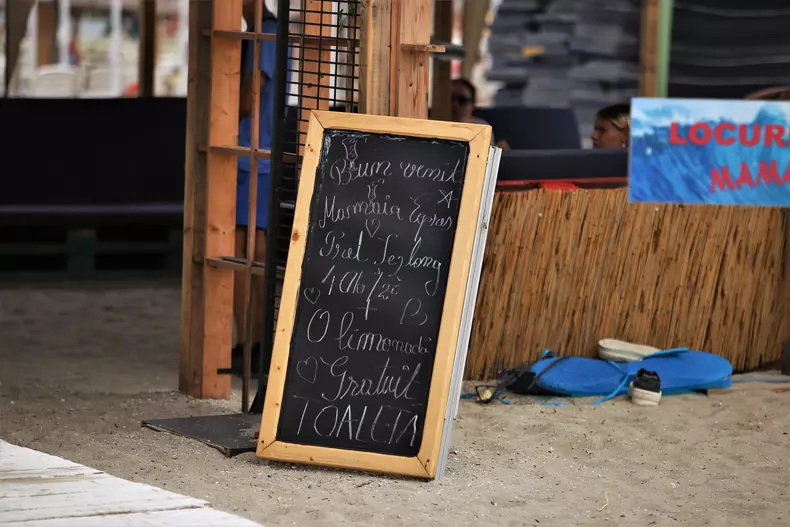 Bum venit
Mamaia Expres
Pret Sezlong
40lei/zi
+
O limonadă
Gratuit
TOALETA
LOCURI
MAMA